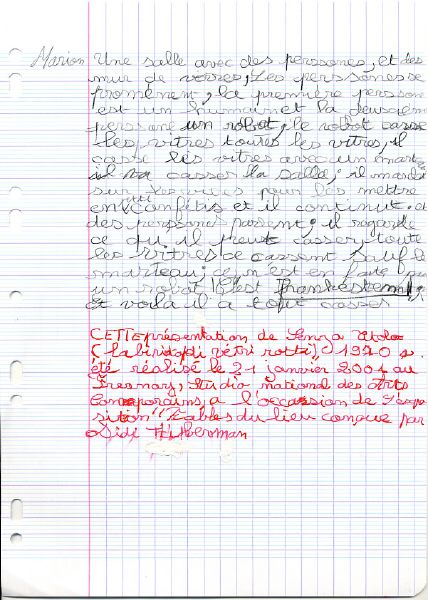 Marion Une salle avec des perssones, et des
mur de verres, Les perssones se
promènent, la première persson
est un humain et la deusiem
perssone un robot, le robot casse
les vitres toutes les vitres, il
casse les vitres avec un marte
il va casser la salle, il march
sur les pour les mettre
en confetis et il continut. et
des perssones passent, il regarde
ce qu'il peut casser, toute
les vitres se cassent sauf le
marteau; ce n'est en faite
un robot c'est Frankestein
et voilà il a tout casser
CETTE présentation de Senza titolo
(labirinto di vetri rotti), 1970 a
été réalisé le 21 janvier 2001 au
Fresnoy, Studio national des Arts
Comporains, a l'occassion de l'expo
sition "Fables du lieu conçue par
Didi Huberman